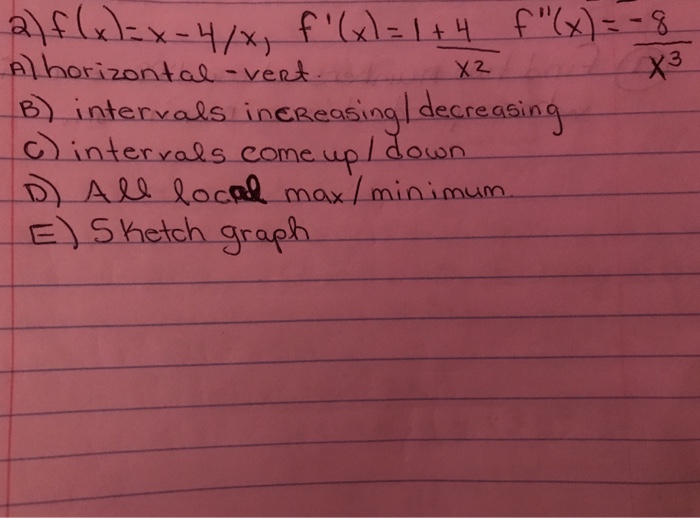 2) f(x)=x-4/x, f'(x)=1+4/x2 f"(x)=-8/x3
A) horizontal-vert.
B) intervals increasing/decreasing
C) intervals come up/down
D) All local max/minimum
E) Sketch graph